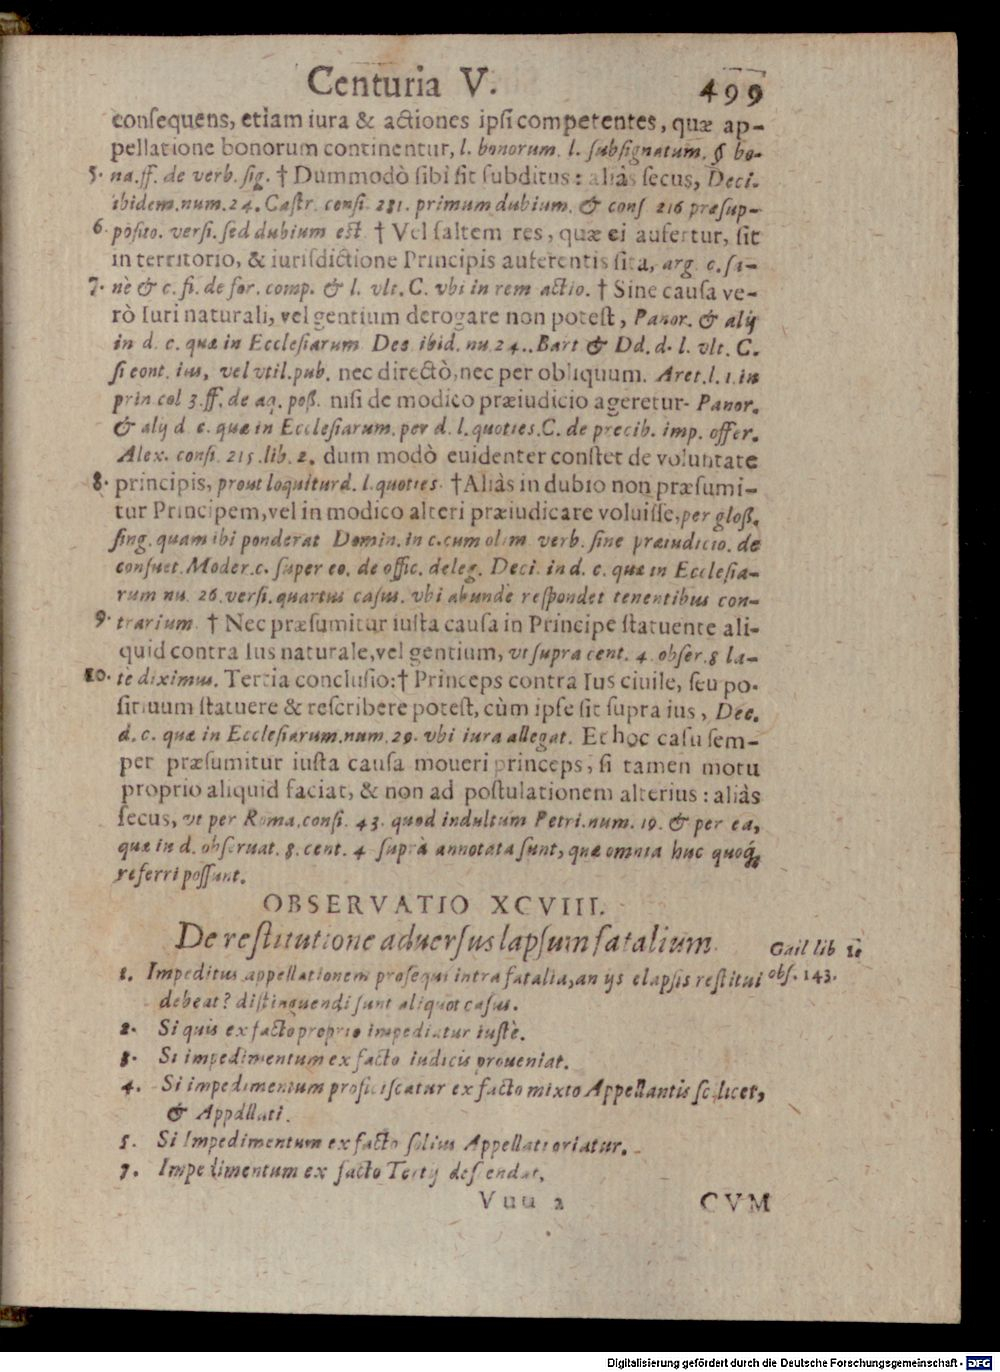 Centuria V. 499
consequens, etiam iura & actiones ipsi competentes, quæ ap-
pellatione bonorum continentur, l. bonorum. l. subsignatum. § bo-
5. na. ff. de verb. sig. † Dummodò sibi sit subditus: aliàs secus, Deci.
ibidem. num. 24. Castr. consi. 281. primum dubium. & cons 216 præsup-
6. posito. versi. sed dubium est. † Vel saltem res, quæ ei aufertur, sit
in territorio, & iurisdictione Principis auferentis sita, arg. c. sa-
7. nè & c. fi. de for. comp. & l. vlt. C. vbi in rem actio. † Sine causa ve-
rò Iuri naturali, vel gentium derogare non potest, Panor. & alij
in d. c. quæ in Ecclesiarum Dec ibid. nu 24.. Bart & Dd. d. l. vlt. C.
si cont. ius, vel vtil. pub. nec directò, nec per obliquum. Aret. l. 1. in
prin col 3. ff. de aq. poß. nisi de modico præiudicio ageretur- Panor.
& alij d. c. quæ in Ecclesiarum. per d. l. quoties. C. de precib. imp. offer.
Alex. consi. 215. lib. 2. dum modò euidenter constet de voluntate
8. principis, prout loquitur d. l. quoties. † Aliàs in dubio non præsumi-
tur Principem, vel in modico alteri præiudicare voluisse, per gloß.
sing. quam ibi ponderat Domin. in c. cum olim verb. sine præiudicio. de
consuet. Moder. c. super eo. de offic. deleg. Deci. in d. c. quæ in Ecclesia-
rum nu. 26. versi. quartus casus. vbi abundè respondet tenentibus con-
9. trarium. † Nec præsumitur iusta causa in Principe statuente ali-
quid contra Ius naturale, vel gentium, vt supra cent. 4. obser. 8 la-
10. tè diximus. Tertia conclusio: † Princeps contra Ius ciuile, seu po-
sitiuum statuere & rescribere potest, cùm ipse sit supra ius, Dec.
d. c. quæ in Ecclesiarum. num. 29. vbi iura allegat. Et hoc casu sem-
per præsumitur iusta causa moueri princeps, si tamen motu
proprio aliquid faciat, & non ad postulationem alterius: aliàs
secus, vt per Roma. consi. 43. quod indultum Petri. num. 19. & per ea,
quæ in d. obseruat. 8. cent. 4 suprà annotata sunt, quæ omnia huc quoq́;
referri possunt.
OBSERVATIO XCVIII.
De restitutione aduersus lapsum fatalium.
Gail lib 1.
obs. 143.
1. Impeditus appellationem prosequi intra fatalia, an ijs elapsis restitui
debeat? distinguendi sunt aliquot casus.
2. Si quis ex facto proprio impediatur iustè.
3. Si impedimentum ex facto iudicis proueniat.
4. Si impedimentum proficiscatur ex facto mixto Appellantis scilicet,
& Appellati.
5. Si Impedimentum ex facto solius Appellati oriatur.
7. Impedimentum ex facto Tertij descendat,
Vuu 2 CVM
Digitalisierung gefördert durch die Deutsche Forschungsgemeinschaft - DFG